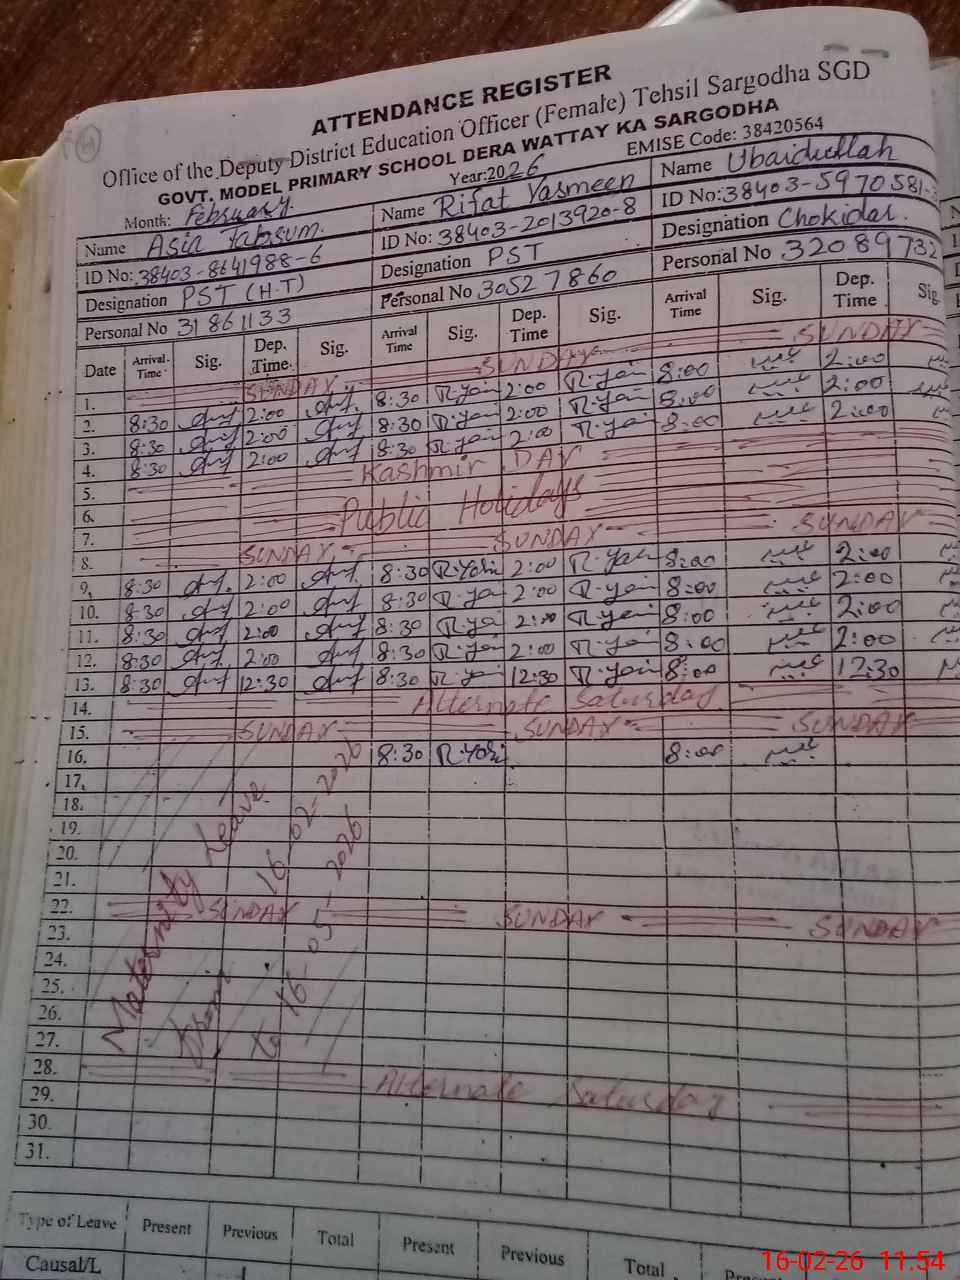 ATTENDANCE REGISTER
Office of the Deputy District Education Officer (Female) Tehsil Sargodha SGD
GOVT. MODEL PRIMARY SCHOOL DERA WATTAY KA SARGODHA
Month: February. Year:2026 EMISE Code: 38420564
Name Asia Tabsum. Name Rifat Yasmeen Name Ubaidullah
ID No: 38403-8641988-6 ID No: 38403-2013920-8 ID No: 38403-5970581-
Designation PST (H.T) Designation PST Designation Chokidar.
Personal No 31861133 Personal No 30527860 Personal No 32089732
Date Arrival Time Sig. Dep. Time Sig. Arrival Time Sig. Dep. Time Sig. Arrival Time Sig. Dep. Time Sig.
1. SUNDAY SUNDAY SUNDAY
2. 8:30 2:00 8:30 2:00 8:00 2:00
3. 8:30 2:00 8:30 2:00 8:00 2:00
4. 8:30 2:00 8:30 2:00 8:00 2:00
5. Kashmir DAY
6.
7. Public Holidays
8. SUNDAY SUNDAY SUNDAY
9. 8:30 2:00 8:30 2:00 8:00 2:00
10. 8:30 2:00 8:30 2:00 8:00 2:00
11. 8:30 2:00 8:30 2:00 8:00 2:00
12. 8:30 2:00 8:30 2:00 8:00 2:00
13. 8:30 12:30 8:30 12:30 8:00 12:30
14. Alternate Saturday
15. SUNDAY SUNDAY SUNDAY
16. 8:30 8:00
17.
18.
19.
20.
21.
22. SUNDAY SUNDAY SUNDAY
23.
24.
25.
26.
27.
28. Alternate Saturday
29.
30.
31.
Maternity Leave
From 16-02-2026
To 16-05-2026
Type of Leave Present Previous Total Present Previous Total Present
Causal/L
16-02-26 11.54